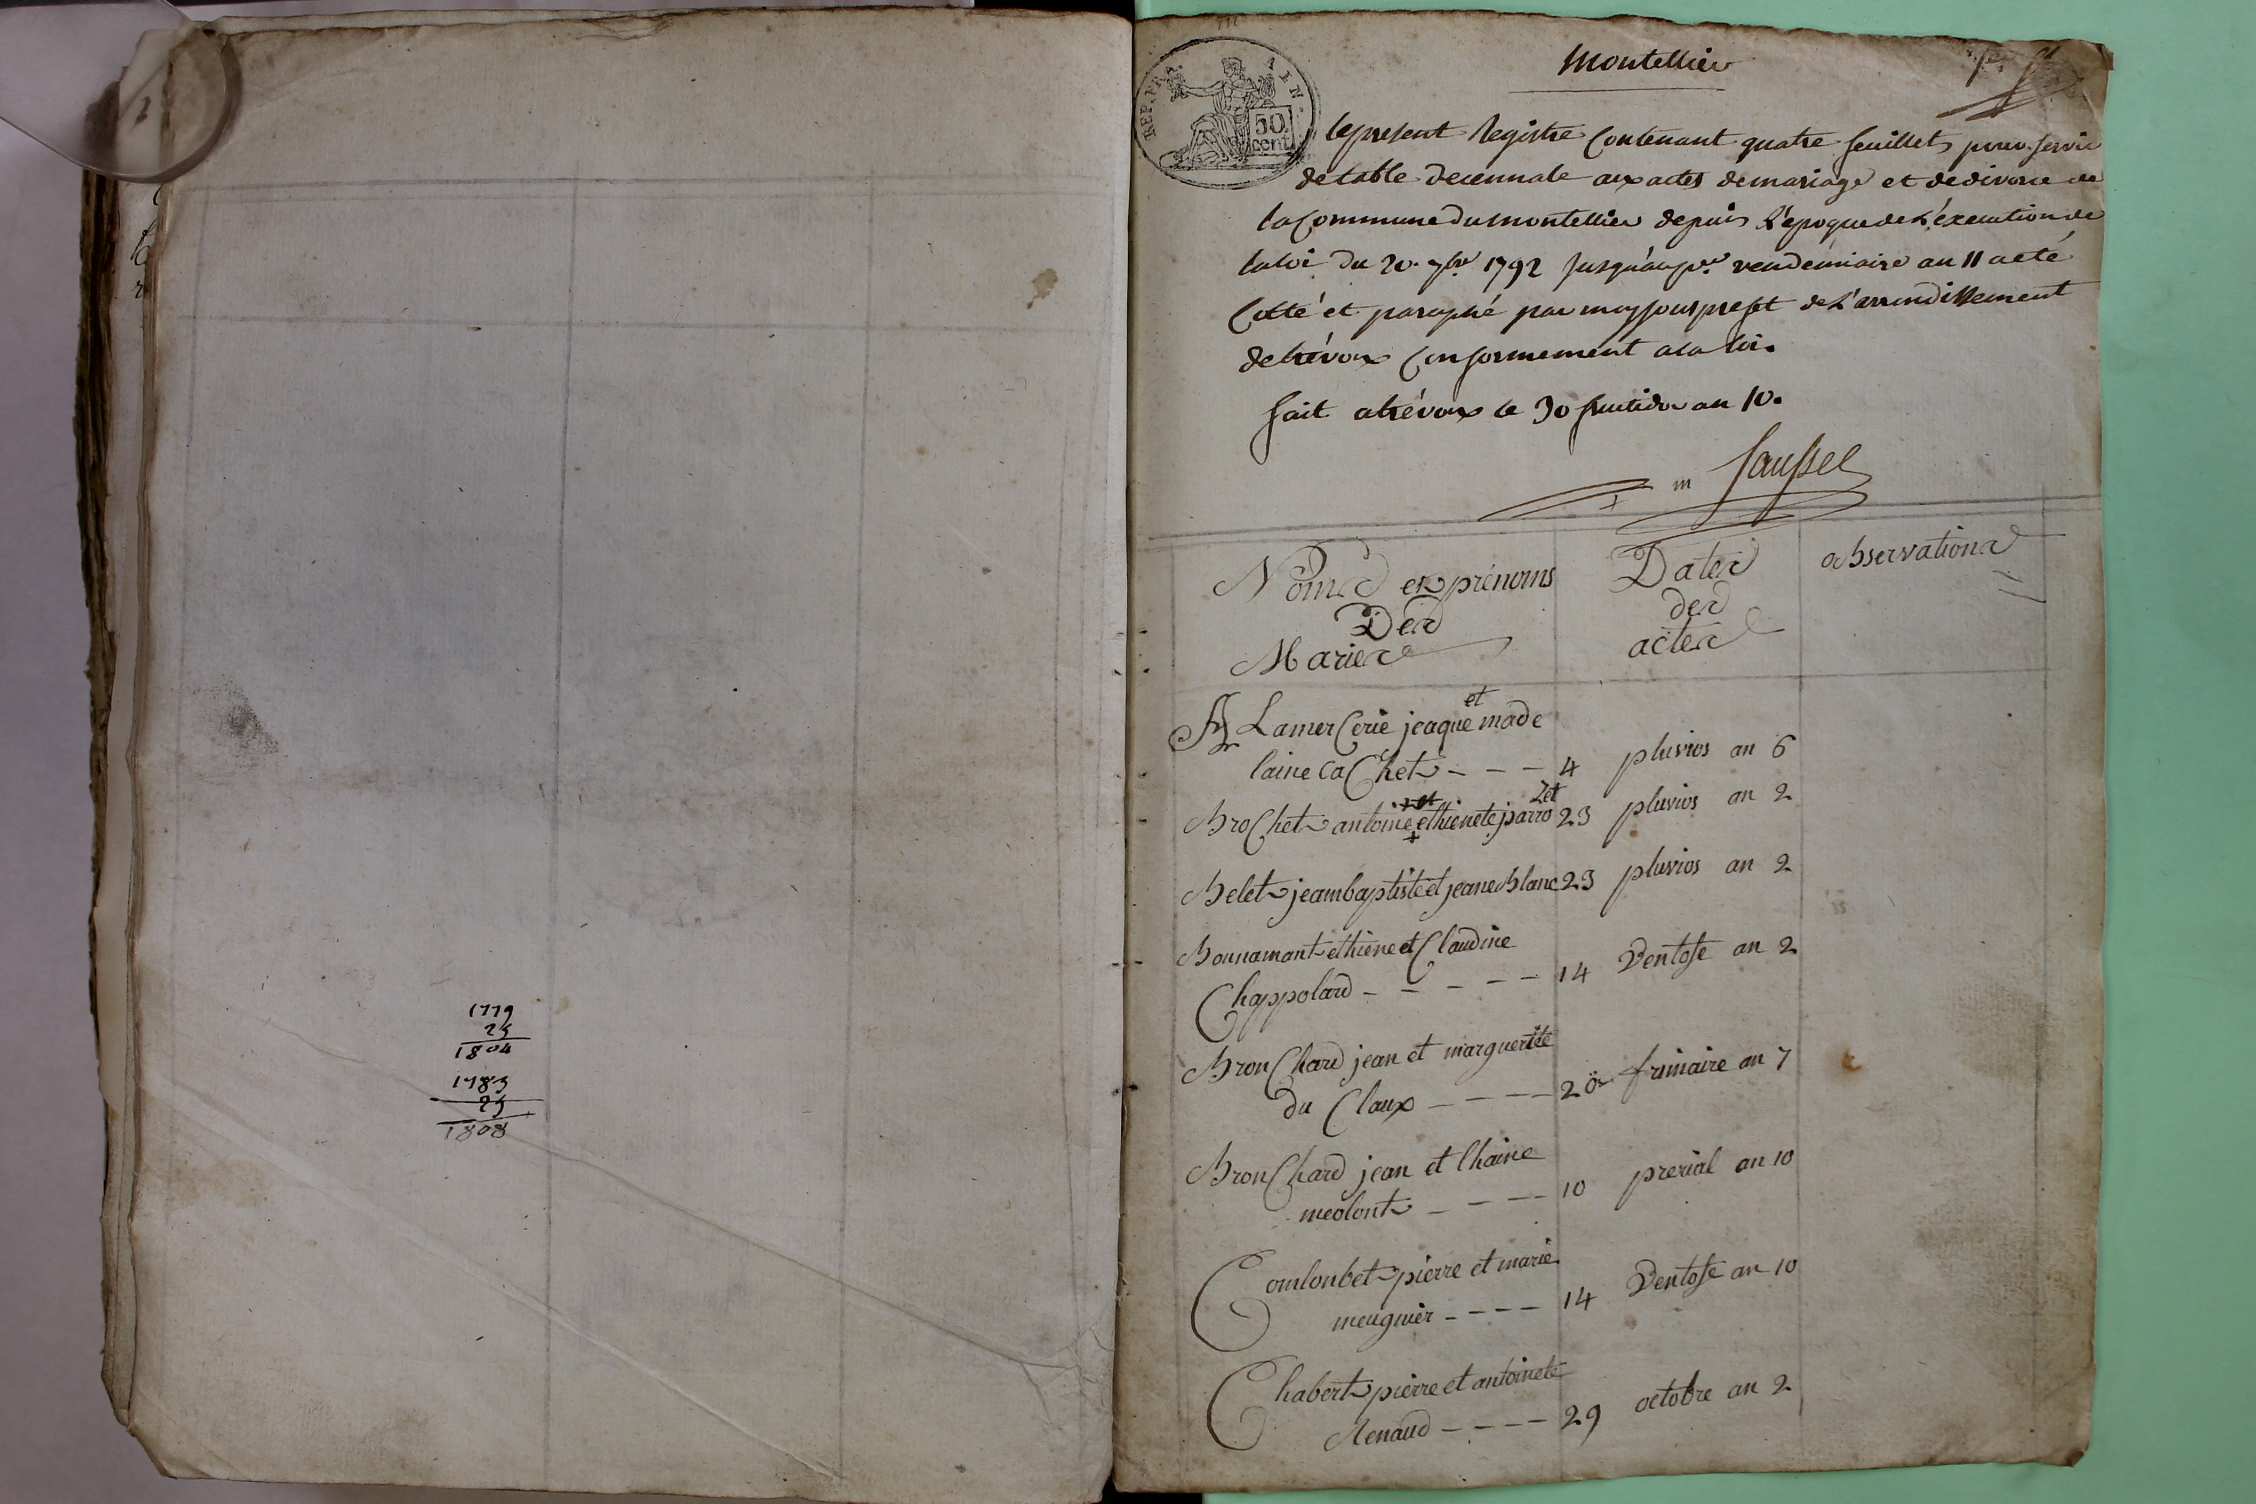 1779
25
1804
1783
25
1808
Montellier
REP. FRA.
50
cent
le present Registre Contenant quatre feuillets pour servir
de table decennale aux actes de mariage et de divorce de
la Commune du montellier depuis L'epoque de L'execution de
la loi du 20. 7bre 1792 jusqu'au per vendémiaire an 11 a eté
Cotté et paraphé par moy sous prefet de L'arrondissement
de trévoux Conformement a la loi.
fait a trévoux le 30 fructidor an 10.
Noms et prénoms Dates observations
Des des
Mariés actes
A Lamercerie jeaque et made
laine CaChet - - - 4 pluvios an 6
BroChet antoine et ethienete parro 23 pluvios an 2
Belet jeambaptiste et jeane Blanc 23 pluvios an 2
Bounamant ethiene et Claudine
Chappolard - - - - - 14 Ventose an 2
BronChard jean et marguerite
du Claux - - - - 20 frimaire an 7
BronChard jean et
meolont - - - - 10 prerial an 10
Coulonbet pierre et marie
meugnier - - - - 14 Ventose an 10
Chabert pierre et antoinete
Renaud - - - - 29 octobre an 2